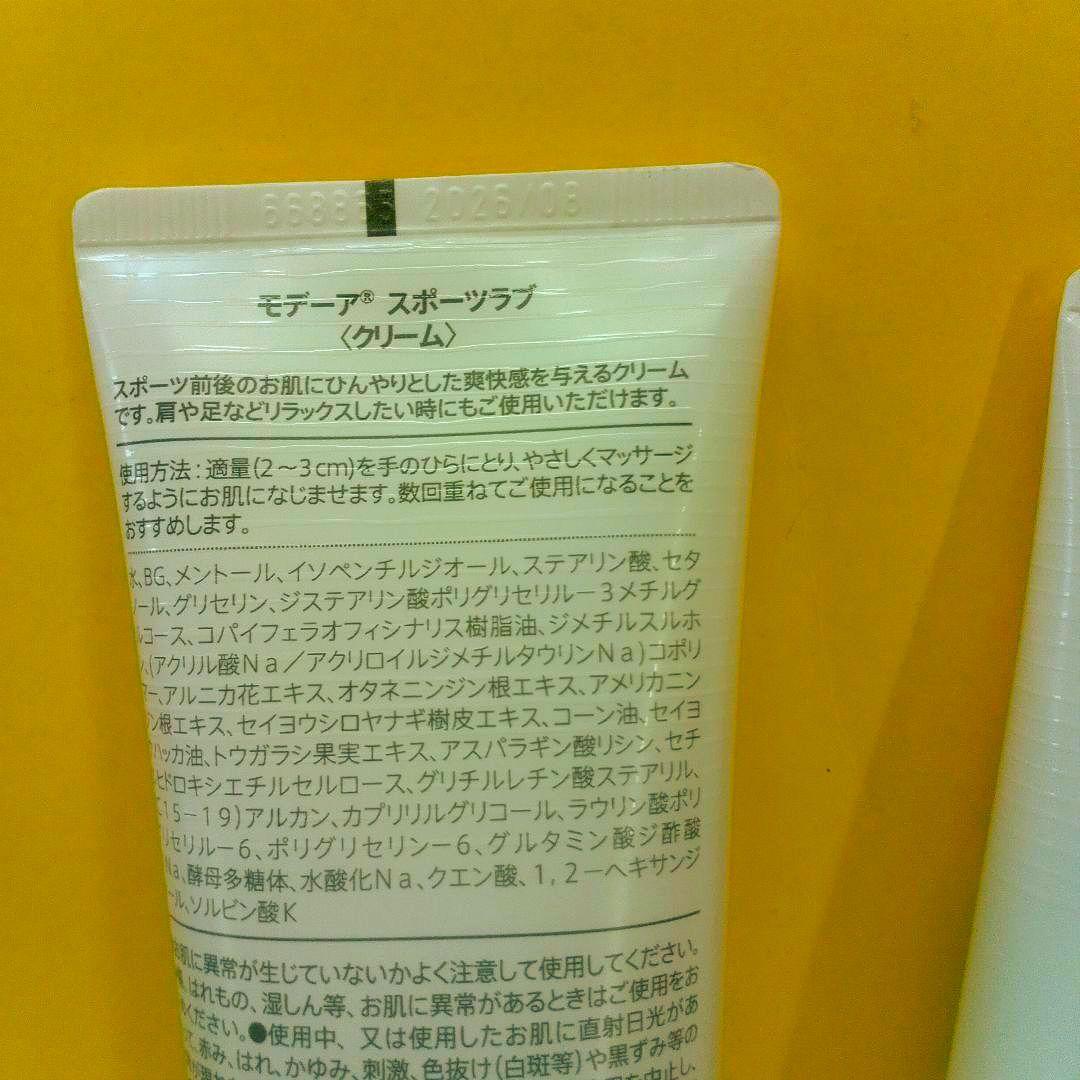 2026/08
モデーア® スポーツラブ
〈クリーム〉
スポーツ前後のお肌にひんやりとした爽快感を与えるクリーム
です。肩や足などリラックスしたい時にもご使用いただけます。
使用方法:適量(2～3cm)を手のひらにとり、やさしくマッサージ
するようにお肌になじませます。数回重ねてご使用になることを
おすすめします。
水、BG、メントール、イソペンチルジオール、ステアリン酸、セタ
ール、グリセリン、ジステアリン酸ポリグリセリル－3メチルグ
ルコース、コパイフェラオフィシナリス樹脂油、ジメチルスルホ
ン、(アクリル酸Na／アクリロイルジメチルタウリンNa)コポリ
マー、アルニカ花エキス、オタネニンジン根エキス、アメリカニン
ジン根エキス、セイヨウシロヤナギ樹皮エキス、コーン油、セイヨ
ウハッカ油、トウガラシ果実エキス、アスパラギン酸リシン、セチ
ルヒドロキシエチルセルロース、グリチルレチン酸ステアリル、
(C15－19)アルカン、カプリリルグリコール、ラウリン酸ポリ
グリセリル－6、ポリグリセリン－6、グルタミン酸ジ酢酸
4Na、酵母多糖体、水酸化Na、クエン酸、1,2－ヘキサンジ
オール、ソルビン酸K
お肌に異常が生じていないかよく注意して使用してください。
はれもの、湿しん等、お肌に異常があるときはご使用をお
ください。●使用中、又は使用したお肌に直射日光があ
て、赤み、はれ、かゆみ、刺激、色抜け(白斑等)や黒ずみ等の